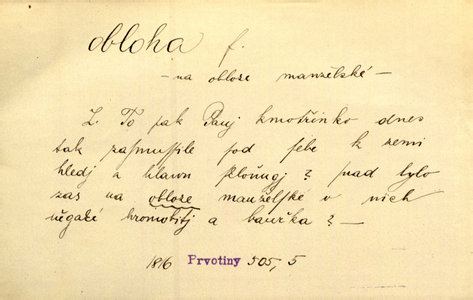 obloha f.
— na obloze manželské —
Z. To pak Panj kmotřinko dnes
tak zasmussile pod sebe k zemi
hledj a hlawu kloňugj? snad bylo
zas na obloze manželské v nich
něgaké hromobitj a bauřka? —
1816 Prvotiny 505, 5